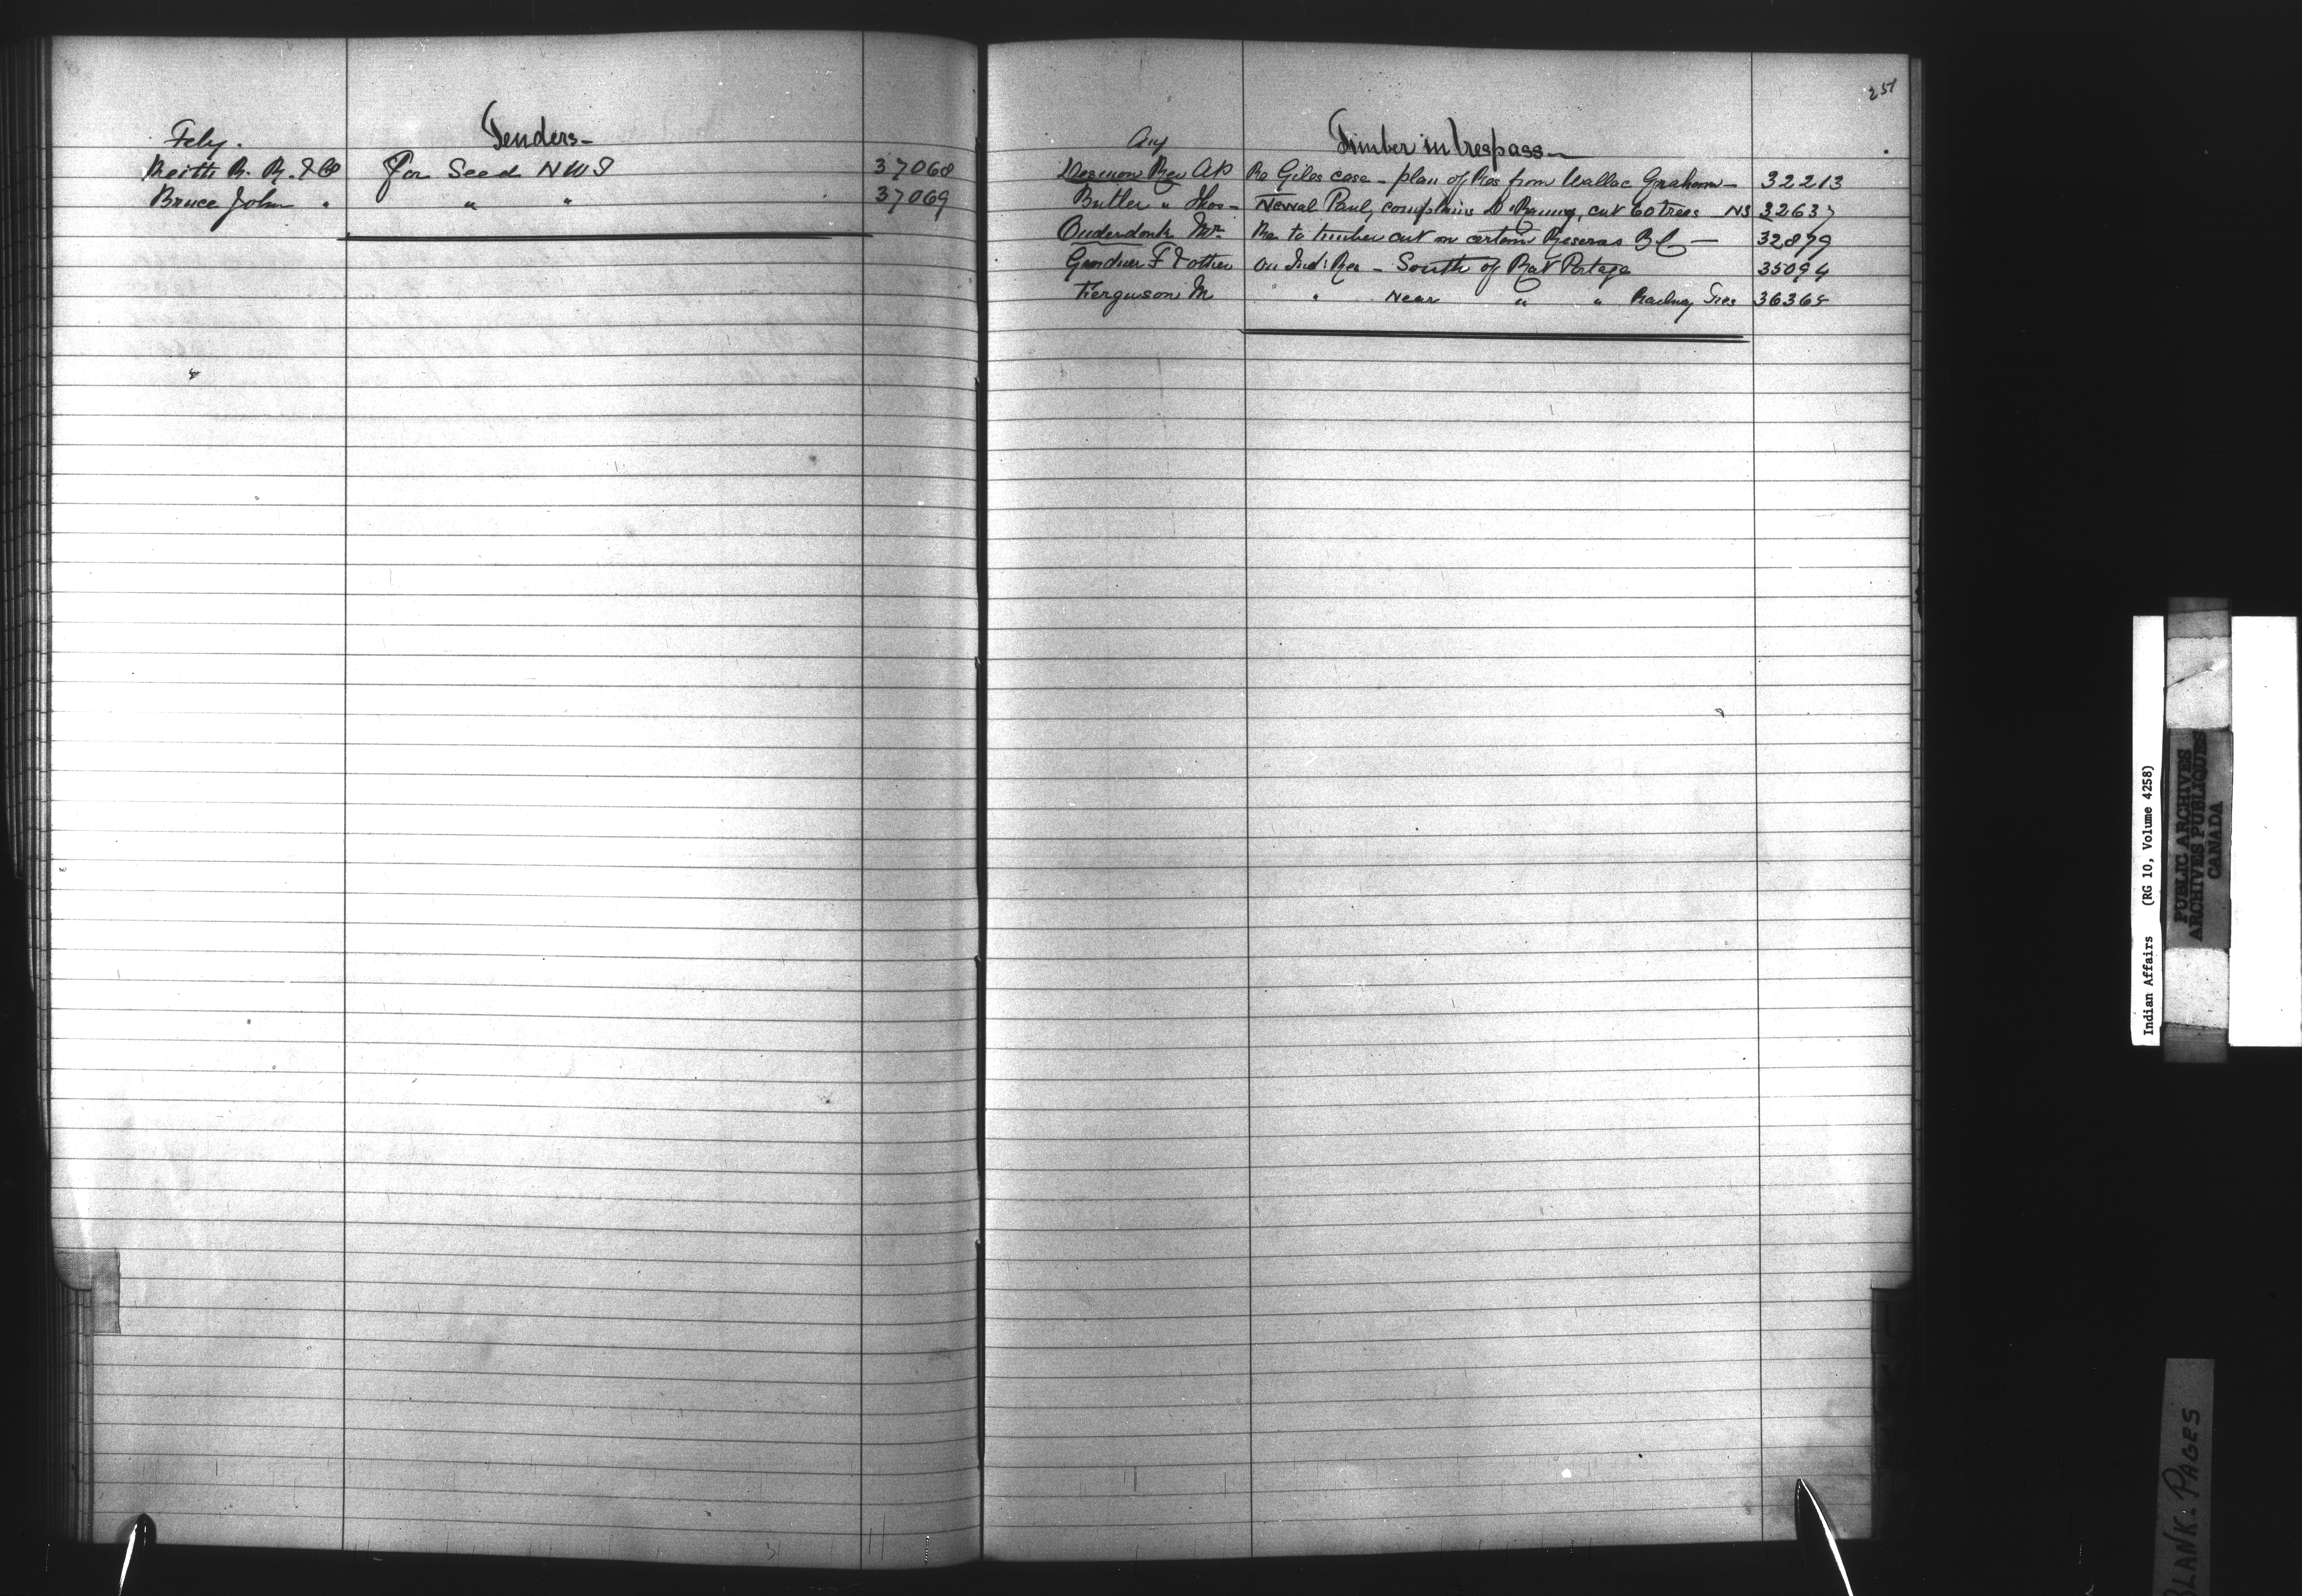 Feby. Tenders-
Keith R. R. & Co For Seed NWT 37068
Bruce John " " " 37069
251
Aug Timber in trespass-
Desmon Rev AP Re Giles case - plan of Res from Wallac Graham - 32213
Butler " Thos - Newal Paul, complains D. Ramy, cut 60 trees NS 32637
Onderdonk Mr. Re to timber cut on certain Reserves BC - 32879
Gardner F & other On Ind: Res - South of Rat Portage 35094
Ferguson M " Near " " Railway Ties 36365
Indian Affairs (RG 10, Volume 4258)
PUBLIC ARCHIVES
ARCHIVES PUBLIQUES
CANADA
BLANK. PAGES